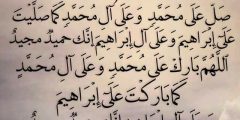 صَلِّ عَلَى مُحَمَّدٍ وَعَلَى آلِ مُحَمَّدٍ كَمَا صَلَّيْتَ
عَلَى إِبْرَاهِيمَ وَعَلَى آلِ إِبْرَاهِيمَ إِنَّكَ حَمِيدٌ مَجِيدٌ
اللَّهُمَّ بَارِكْ عَلَى مُحَمَّدٍ وَعَلَى آلِ مُحَمَّدٍ
كَمَا بَارَكْتَ عَلَى إِبْرَاهِيمَ